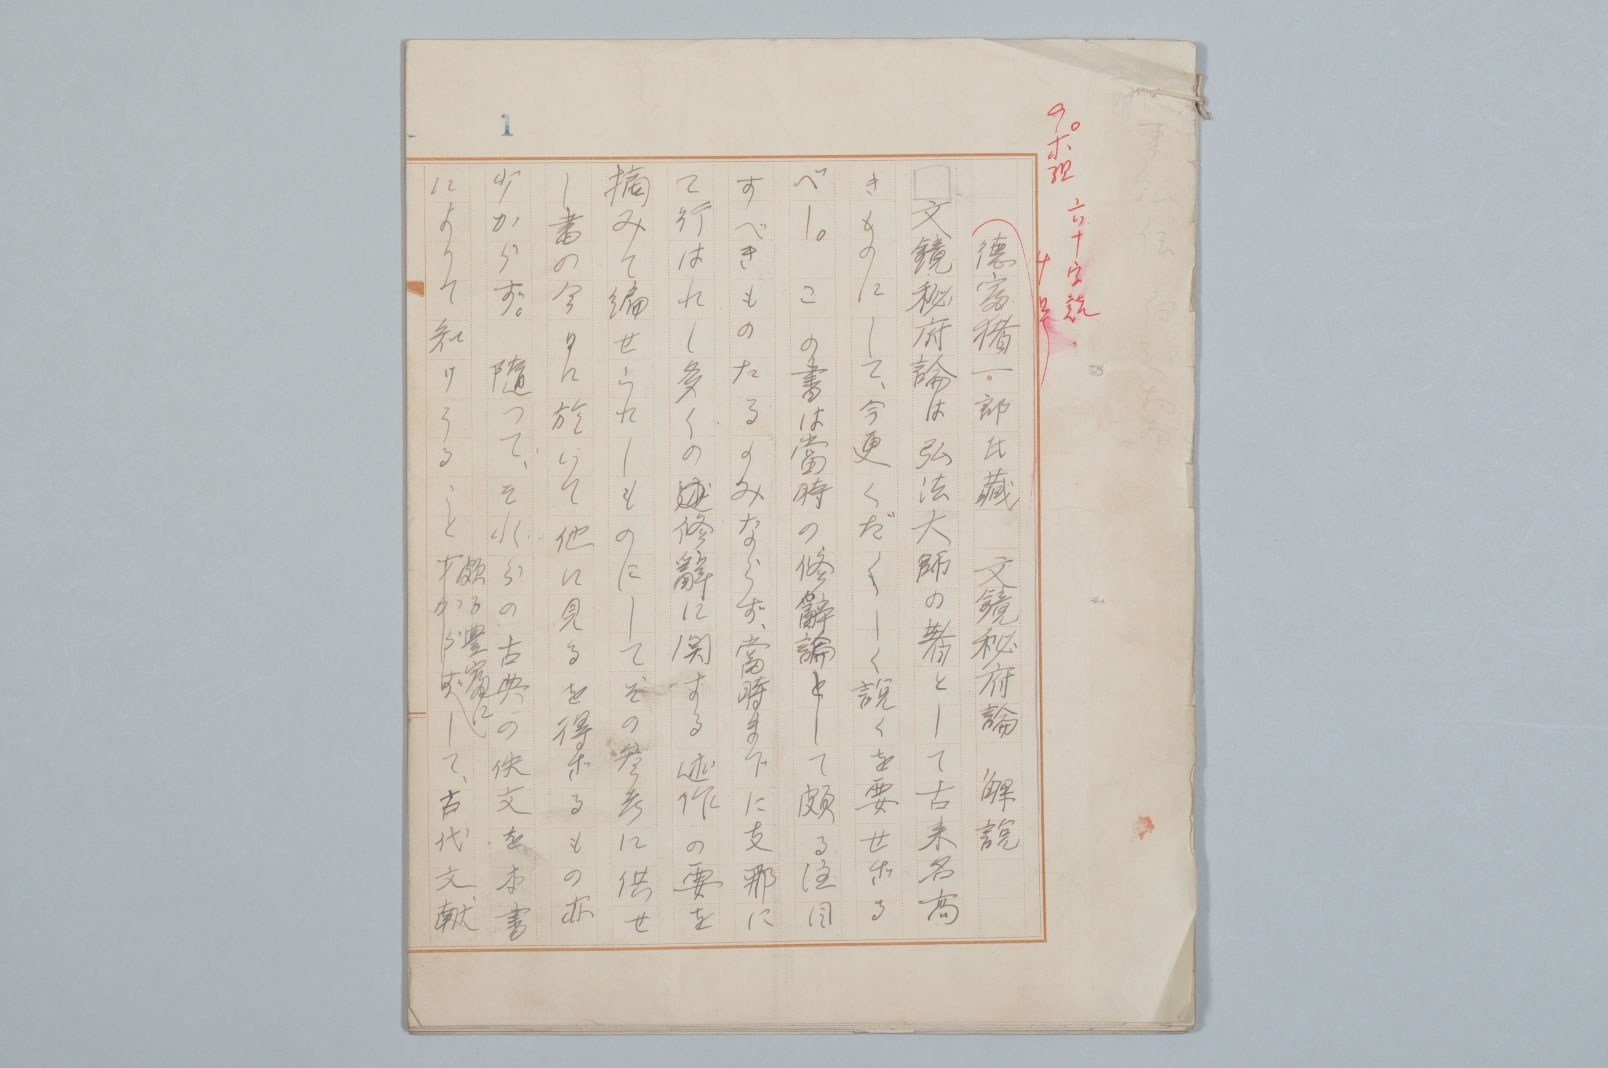 1
の。ポ組
六十字詰
徳富猪一郎氏藏　文鏡秘府論　解説
文鏡秘府論は弘法大師の著として古来名高
きものにして、今更くだくしく説くを要せざる
べし。この書は當時の修辭論として頗る注目
すべきものたるのみならず、當時まで下に支那に
て行はれし多くの修辭に関する述作の要を
摘みて編せられしものにしてその參考に供せ
し書の今日に於いて他に見るを得ざるもの亦
少からず。随つて、それらの古典の佚文を本書
によりて知りうること頗る豊富にして、古代文献
すからず